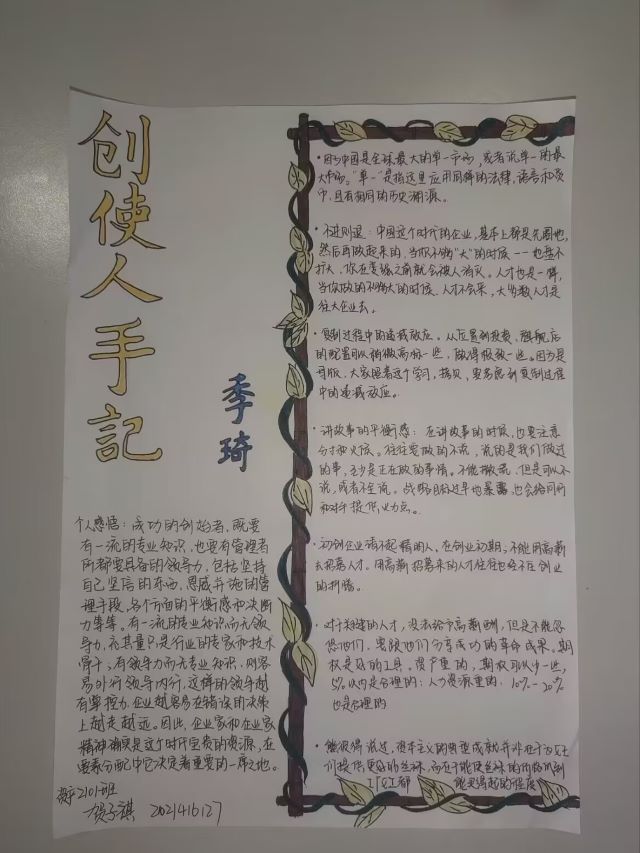 创使人手記
季琦
个人感悟：成功的创始者，既要
有一流的专业知识，也要有管理者
所都要具备的领导力，包括坚持
自己坚信的东西，恩威并施的管
理手段，各个方面的平衡感和决断
力等等。有一流的专业知识而无领
导力，充其量只是行业的专家和技术
骨干；有领导力而无专业知识，则容
易外行领导内行，这样的领导越
有掌控力，企业越容易在错误的决策
上越走越远。因此，企业家和企业家
精神确实是这个时代宝贵的资源，在
要素分配中它决定着重要的一席之地。
2101班
贺子祺 2021416127
·因为中国是全球最大的单一市场，或者说单一的最
大市场。“单一”是指这里应用同样的法律，语言和货
币，且有相同的历史渊源。
·不进则退：中国这个时代的企业，基本上都是先圈地，
然后再做起来的，当你不够“大”的时候--也要不
扩大，你在变强之前就会被人消灭。人才也是一样，
当你做的不够大的时候，人才不会来，大多数人才是
往大企业去。
·复制过程中的递减效应。从位置到投资，旗舰店
的配置可以稍微高标一些，做得极致一些。因为是
母版，大家照着这个学习，拷贝，要考虑到复制过程
中的递减效应。
·讲故事的平衡感：在讲故事的时候，也要注意
分寸和火候。往往要做的不说，说的是我们做过
的事，至少是正在做的事情。不能撒谎，但是可以不
说，或者不全说。战略目标过早地暴露也会给同行
和对手提供火力点。
·初创企业请不起精的人，在创业初期，不能用高薪
去招募人才。用高薪招募来的人才往往也经不住创业
的折腾。
·对于和建的人才，没法给予高薪酬，但是不能忽
悠他们，要跟他们分享成功的革命成果。期
权是好的工具，资产重的，期权可以少一些，
5%以内是合理的；人力资源重的，10%-20%
也是合理的
·熊彼得说过，资本主义的典型成就并非在于为女王
们提供更多的丝袜，而在于能使丝袜的价格低到
工厂女工都能买得起的程度